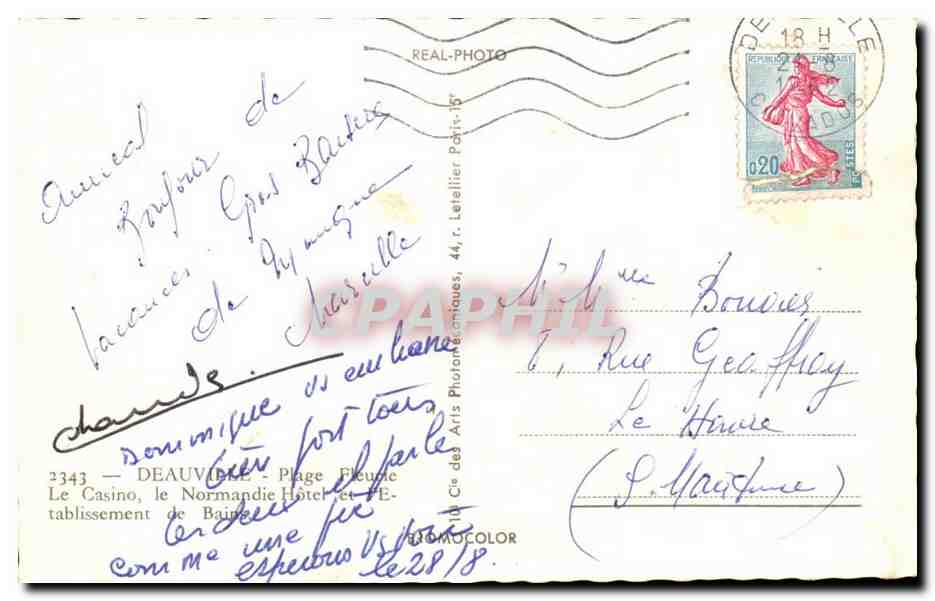 REAL-PHOTO
DEAUVILLE
18 H
CALVADOS
REPUBLIQUE FRANÇAISE
0,20
POSTES
Amical
Bonjour de
vacances Gros Baisers
de
Marcelle
Claude.
Dominique vs embrasse
bien fort tous
les deux et parle
comme une pie
espérons vs voir
le 28/8.
2343 — DEAUVILLE - Plage Fleurie
Le Casino, le Normandie Hôtel et l'E-
tablissement de Bains
101 Cie des Arts Photomécaniques, 44, r. Letellier Paris-15e
BROMOCOLOR
CPAPHIL
M Mme Bouvier
Rue Geoffroy
Le Havre
(S. Maritime)